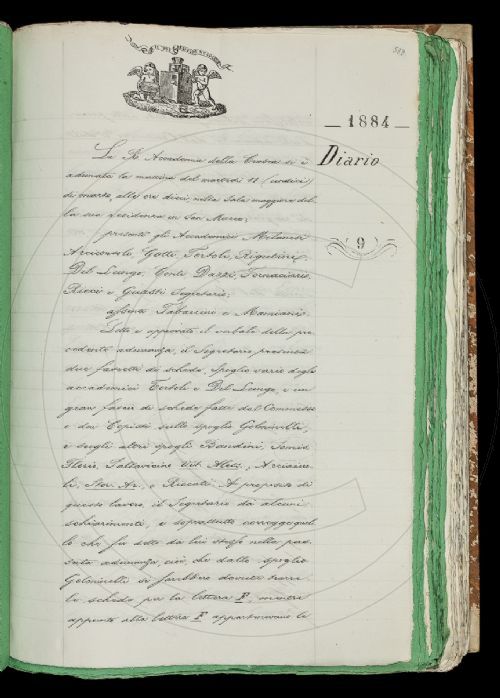 582
— 1884 —
Diario
9
La R. Accademia della Crusca si è
adunata la mattina del martedì 11 (undici)
di marzo, alle ore dieci, nella Sala maggiore del-
la sua residenza in San Marco;
presenti gli Accademici Milanesi
Arciconsolo, Gotti, Tortoli, Rigutini,
Del Lungo, Conti, Dazzi, Tornaciari,
Ricci e Guasti Segretario;
assenti Tabarrini e Mamiani.
Letto e approvato il verbale della pre-
cedente adunanza, il Segretario presenta
due fascetti di schede, spoglio vario degli
accademici Tortoli e Del Lungo, e un
gran fascio di schede fatte dal Commesso
e dai Copisti sullo spoglio Gelminelli,
e sugli altri spogli Bandini,
Pallavicino Vit. Aless., Acciaiuo-
li, Stor. Ar., e Riccati. A proposito di
questo lavoro il Segretario dà alcuni
schiarimenti, e soprattutto corregge quel-
lo che fu detto da lui stesso nella pas-
sata adunanza, cioè che dallo spoglio
Gelminelli si sarebbero dovute trarre
le schede per la lettera F, mentre
appunto alla lettera F appartenevano le